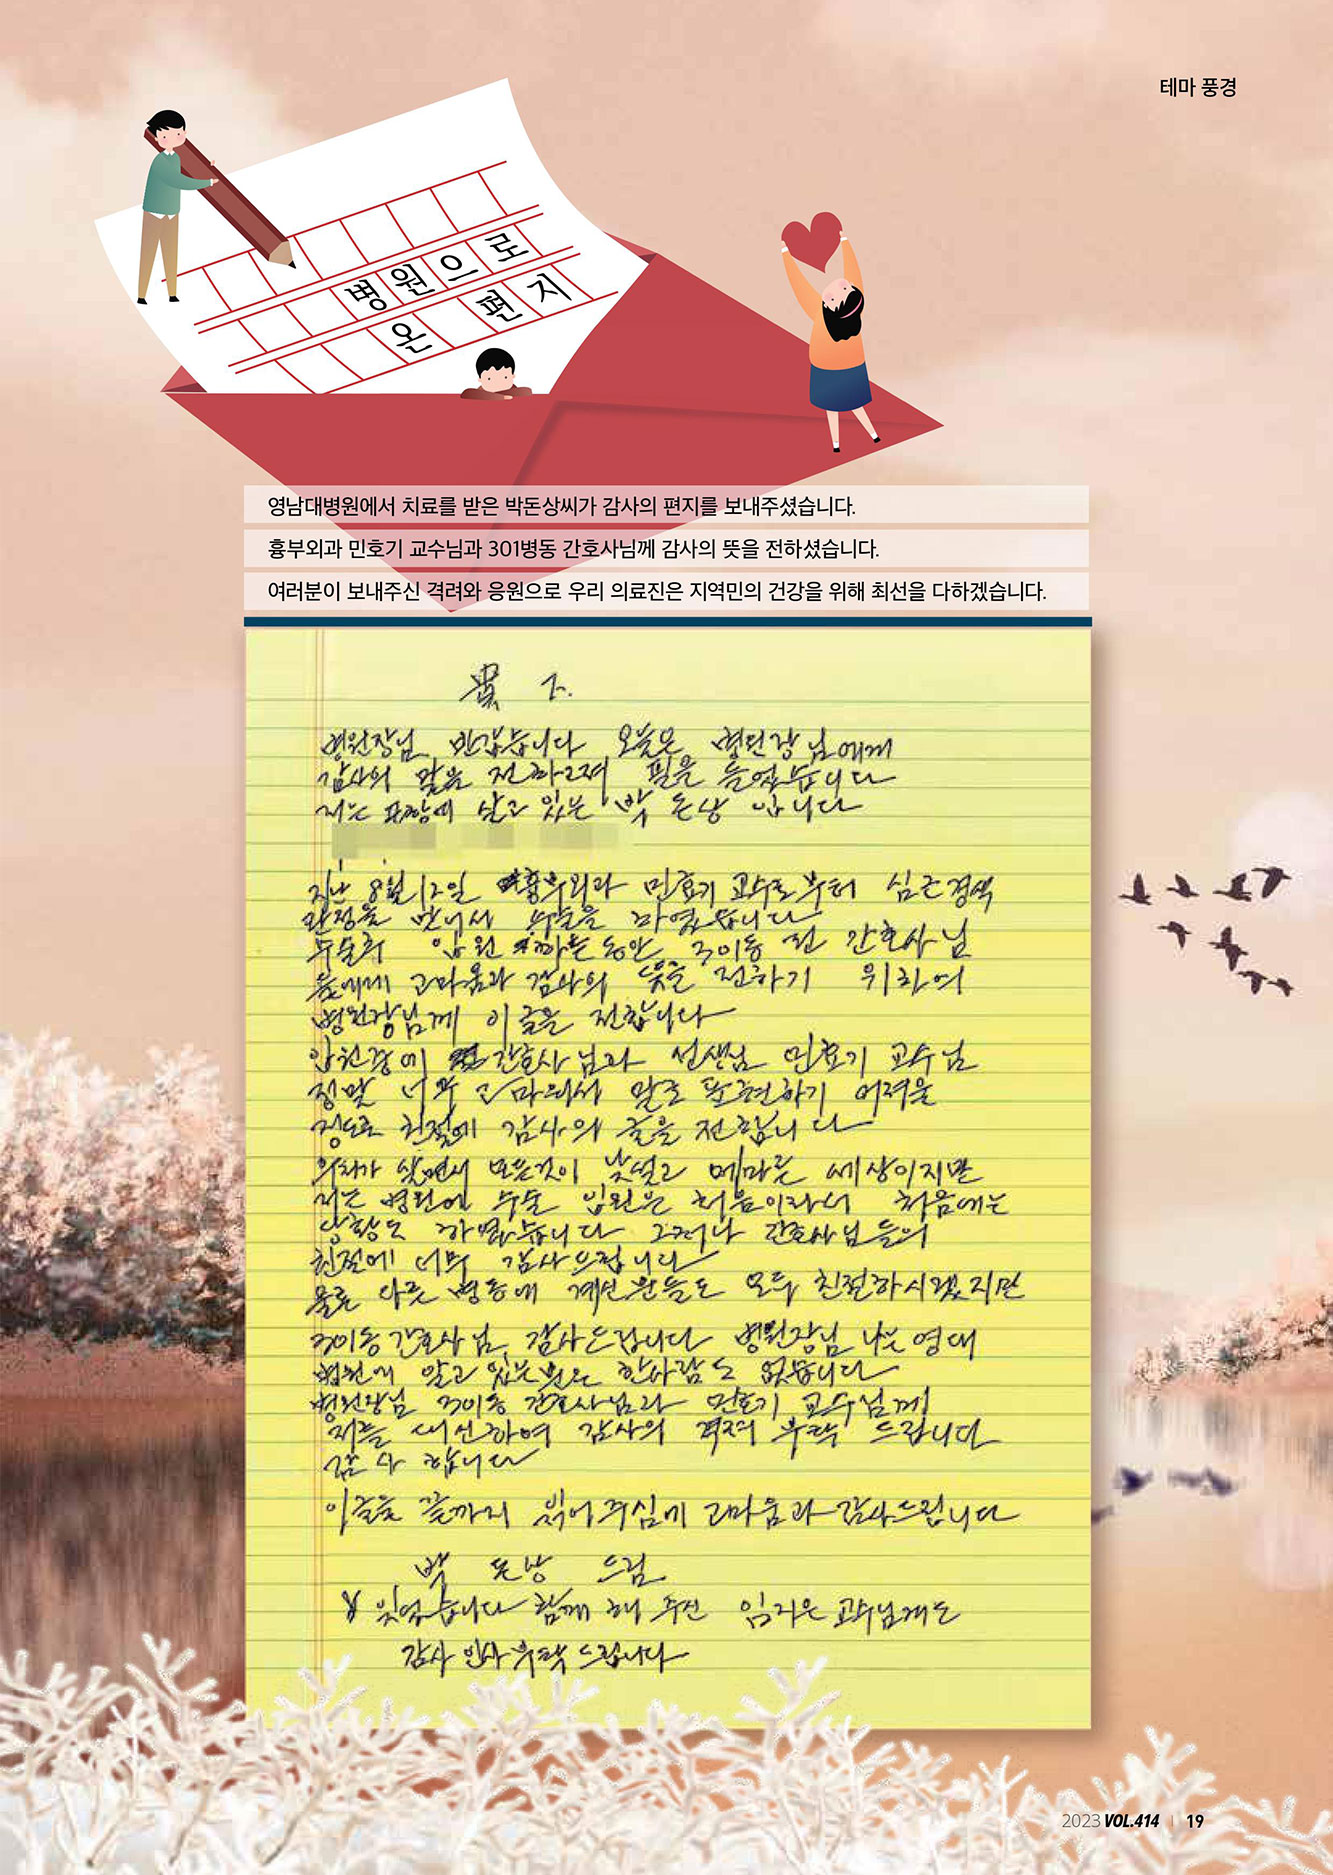 테마 풍경
병원으로
온 편지
영남대병원에서 치료를 받은 박돈상씨가 감사의 편지를 보내주셨습니다.
흉부외과 민호기 교수님과 301병동 간호사님께 감사의 뜻을 전하셨습니다.
여러분이 보내주신 격려와 응원으로 우리 의료진은 지역민의 건강을 위해 최선을 다하겠습니다.
貴 下.
병원장님 반갑습니다 오늘은 병원장님에게
감사의 말을 전하고져 필을 들었습니다
저는 포항에 살고 있는 박 돈상 입니다
지난 8월 12일 흉부외과 민호기 교수로부터 심근경색
판정을 받아서 수술을 하였습니다
수술후 입원 하는동안 301동 전 간호사님
들에게 고마움과 감사의 뜻을 전하기 위하여
병원장님께 이글을 전합니다
입원중에 간호사님과 선생님 민호기 교수님
정말 너무 고마워서 말로 표현하기 어려울
정도로 친절에 감사의 글을 전합니다
모든것이 낯설고 메마른 세상이지만
저는 병원에 수술 입원은 처음이라서 처음에는
당황도 하였습니다 그러나 간호사님들의
친절에 너무 감사드립니다
물론 다른 병동에 계신분들도 모두 친절하시겠지만
301동 간호사님 감사드립니다 병원장님 나는 영대
병원에 알고 있는분은 한사람도 없습니다
병원장님 301동 간호사님과 민호기 교수님께
저를 대신하여 감사의 격려 부탁 드립니다
감사 합니다
이글을 끝까지 읽어주심에 고마움과 감사드립니다
박 돈상 드림
잊었습니다 함께 해 주신 임지은 교수님께도
감사 인사 부탁 드립니다
2023 VOL.414 | 19